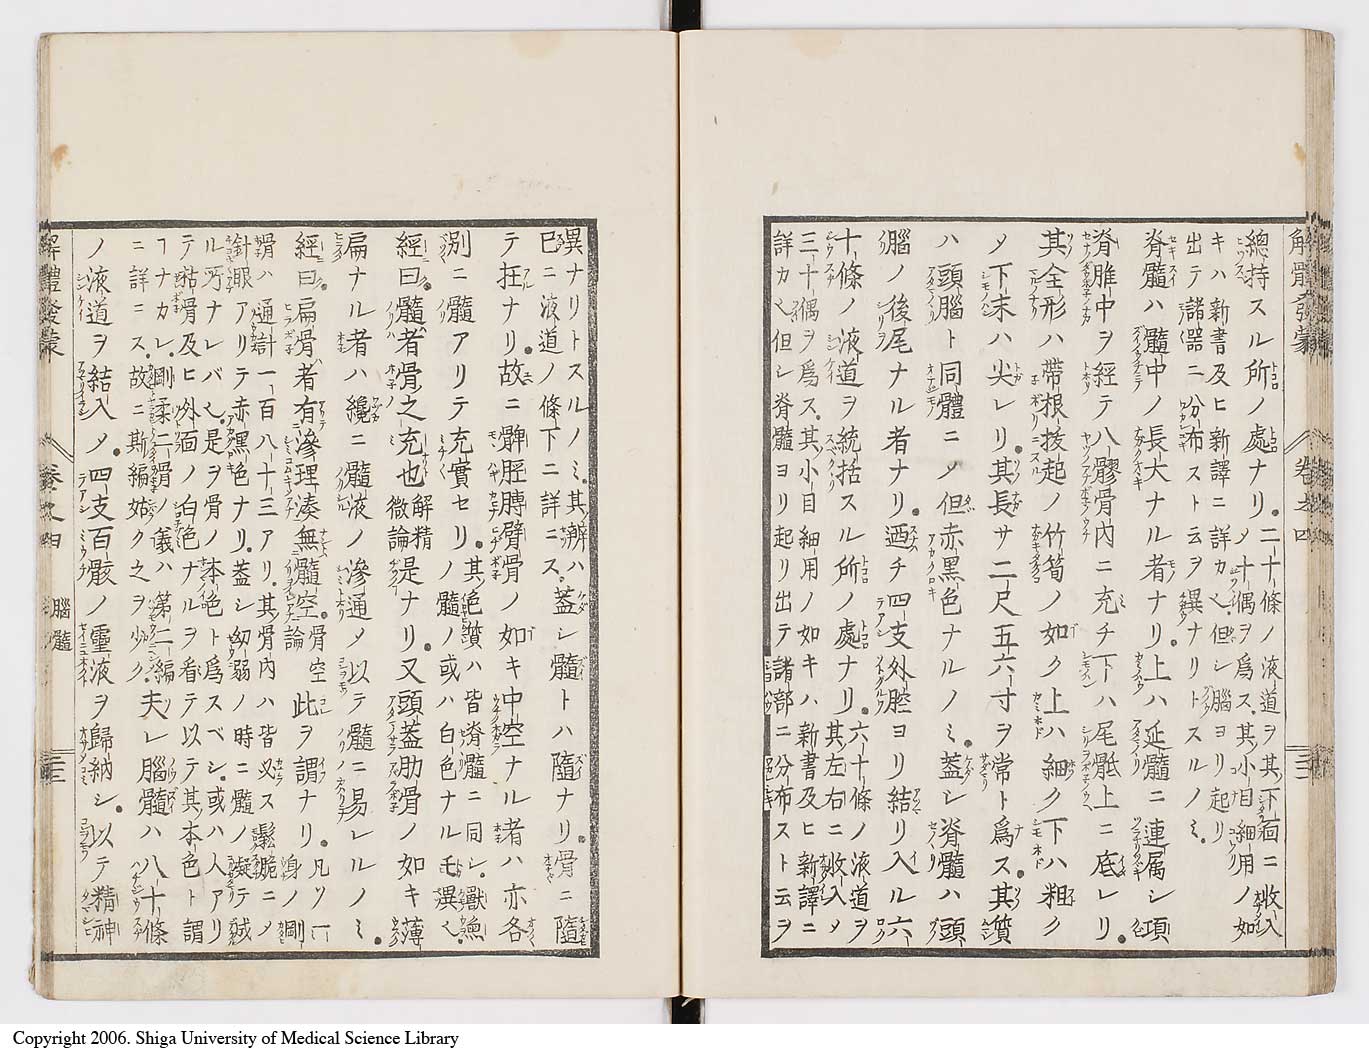 解體發蒙
卷之四
總持スル所ノ處ナリ。二十條ノ液道ヲ其下面ニ收入
メ十偶ヲ爲ス。其小目細用ノ如
キハ新書及ヒ新譯ニ詳カ也。但シ腦ヨリ起リ
出テ諸器ニ分布スト云ヲ異ナリトスルノミ。
脊髓ハ髓中ノ長大ナル者ナリ。上ハ延髓ニ連属シ項
脊脽中ヲ經テ八髎骨内ニ充チ下ハ尾骶上ニ底レリ。
其全形ハ帶根拔起ノ竹筍ノ如ク上ハ細ク下ハ粗ク
メ下末ハ尖レリ。其長サ二尺五六寸ヲ常ト爲ス。其質
ハ頭腦ト同體ニメ但赤黒色ナルノミ。蓋シ脊髓ハ頭
腦ノ後尾ナル者ナリ。迺チ四支外腔ヨリ結リ入ル六
十條ノ液道ヲ統括スル所ノ處ナリ。六十條ノ液道ヲ
其左右ニ收入メ
三十偶ヲ爲ス。其小目細用ノ如キハ新書及ヒ新譯ニ
詳カ也。但シ脊髓ヨリ起リ出テ諸部ニ分布スト云ヲ
異ナリトスルノミ。其辨ハ
已ニ液道ノ條下ニ詳ニス。蓋シ髓トハ隨ナリ。骨ニ隨
テ在ナリ。故ニ髀脛膊臂骨ノ如キ中空ナル者ハ亦各
別ニ髓アリテ充實セリ。其色質ハ皆脊髓ニ同シ。獸魚
ノ髓ノ或ハ白色ナルモ異也。
經曰。髓者骨之充也解精
微論是ナリ。又頭蓋肋骨ノ如キ薄
扁ナル者ハ纔ニ髓液ノ滲通メ以テ髓ニ易レルノミ。
經曰。扁骨者有滲理湊無髓空骨空
論此ヲ謂ナリ。凡ソ一身ノ剛
骨ハ通計一百八十三アリ。其骨内ハ皆必ス鬆脆ニメ
針眼アリテ赤黒色ナリ。蓋シ幼弱ノ時ニ髓ノ凝テ成
ル所ナレバ也。是ヲ骨ノ本色ト爲スベシ。或ハ人アリ
テ骷骨及ヒ外面ノ白色ナルヲ看テ以テ其本色ト謂
ヿナカレ。剛柔二骨ノ儀ハ第二編
ニ詳ニス。故ニ斯編姑ク之ヲ少ク。夫レ腦髓ハ八十條
ノ液道ヲ結入メ。四支百骸ノ靈液ヲ歸納シ。以テ精神
解體發蒙
卷之四
腦髓
Copyright 2006. Shiga University of Medical Science Library